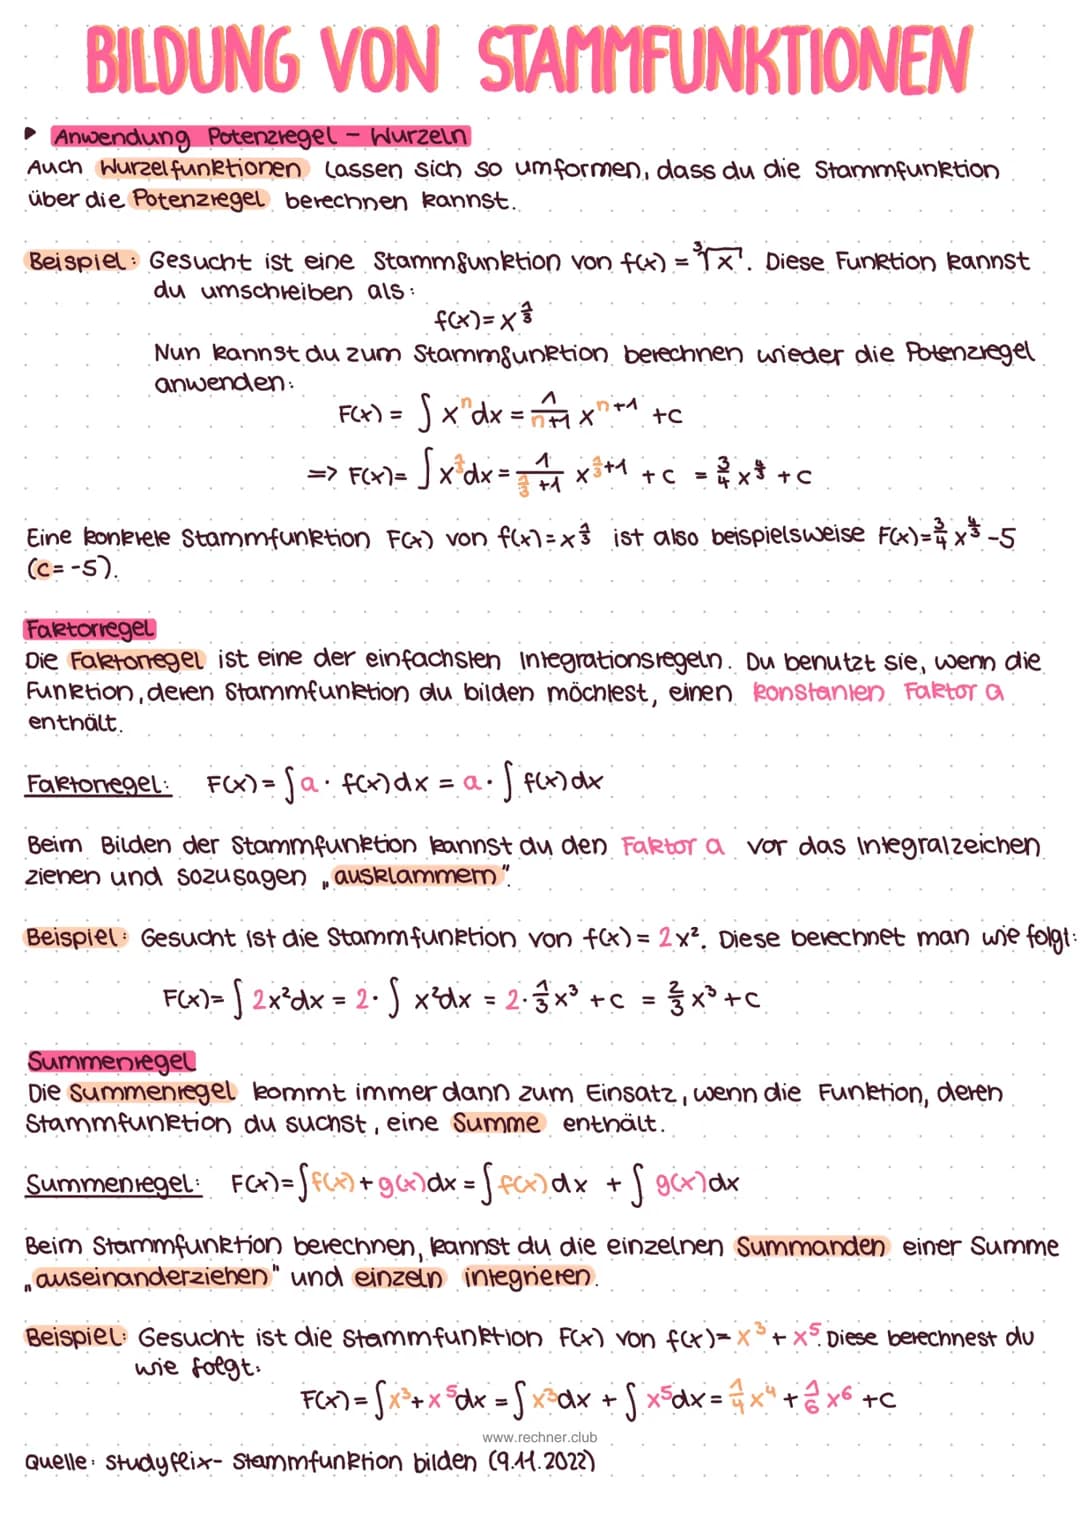 BILDUNG VON STAMMFUNKTIONEN
▶ Anwendung Potenzregel - Wurzeln
Auch Wurzelfunktionen lassen sich so umformen, dass du die Stammfunktion
über die Potenzregel berechnen kannst.
Beispiel: Gesucht ist eine Stammfunktion von f(x) = ∛x. Diese Funktion kannst
du umschreiben als:
f(x)=x^(1/3)
Nun kannst du zum Stammfunktion berechnen wieder die Potenzregel
anwenden:
F(x) = ∫ x^n dx = 1/(n+1) x^(n+1) +c
=> F(x)= ∫ x^(1/3) dx = 1/(1/3+1) x^(1/3+1) + c = 3/4 x^(4/3) + c
Eine konkrete Stammfunktion F(x) von f(x)=x^(1/3) ist also beispielsweise F(x)=3/4 x^(4/3) -5
(c= -5).
Faktorregel
Die Faktorregel ist eine der einfachsten Integrationsregeln. Du benutzt sie, wenn die
Funktion, deren Stammfunktion du bilden möchtest, einen konstanten Faktor a
enthält.
Faktorregel: F(x)= ∫ a · f(x)dx = a · ∫ f(x)dx
Beim Bilden der Stammfunktion kannst du den Faktor a vor das Integralzeichen
ziehen und sozusagen „ausklammern".
Beispiel: Gesucht ist die Stammfunktion von f(x)= 2x². Diese berechnet man wie folgt:
F(x)= ∫ 2x²dx = 2· ∫ x²dx = 2·1/3 x³ +c = 2/3 x³ +c
Summenregel
Die Summenregel kommt immer dann zum Einsatz, wenn die Funktion, deren
Stammfunktion du suchst, eine Summe enthält.
Summenregel: F(x)=∫f(x)+g(x)dx = ∫ f(x)dx + ∫ g(x)dx
Beim Stammfunktion berechnen, kannst du die einzelnen Summanden einer Summe
„auseinanderziehen" und einzeln integrieren.
Beispiel: Gesucht ist die Stammfunktion F(x) von f(x)= x³ + x⁵. Diese berechnest du
wie folgt:
F(x)= ∫x³+x⁵dx = ∫ x³dx + ∫ x⁵dx = 1/4 x⁴ + 1/6 x⁶ +c
www.rechner.club
Quelle: studyflix- Stammfunktion bilden (9.11.2022)